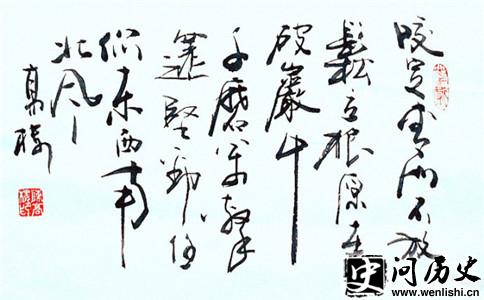 咬定青山不放
鬆立根原在
破巖中
千磨萬擊
還堅勁任
尔东西南
北风
史 问历史
www.wenlishi.cn